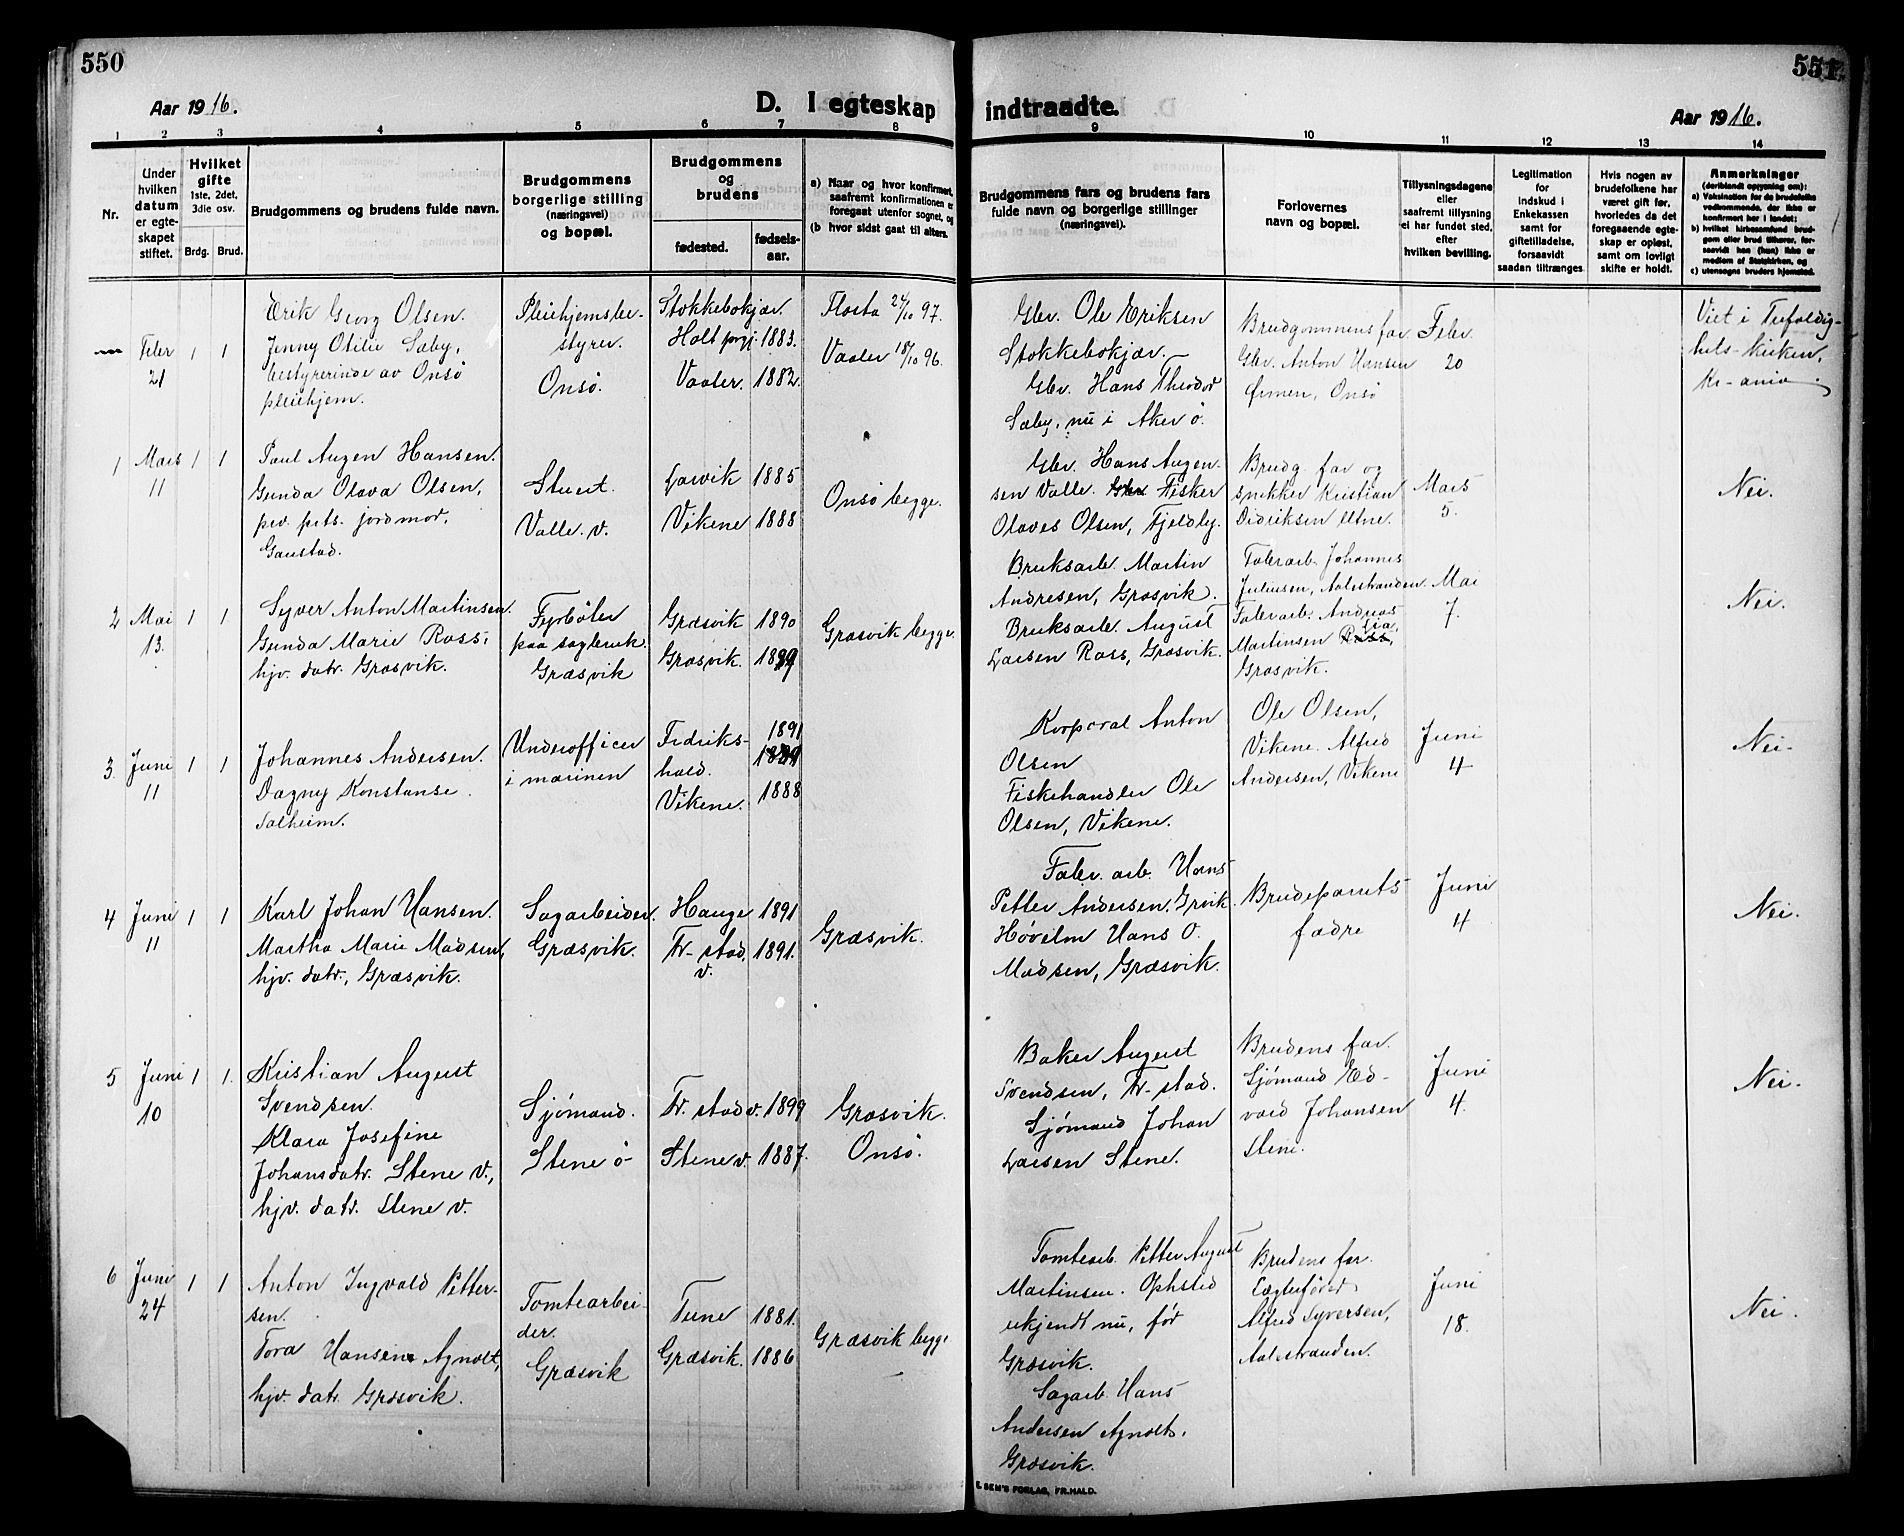 550
Aar 1916.
D. I egteskap
1 2 3 4 5 6 7 8
Nr.
Under hvilken datum er egteskapet stiftet.
Hvilket gifte 1ste, 2det, 3die osv.
Brdg. Brud.
Brudgommens og brudens fulde navn.
Brudgommens borgerlige stilling (næringsvei) og bopæl.
Brudgommens og brudens
fødested. fødselsaar.
a) Naar og hvor konfirmert, saafremt konfirmationen er foregaat utenfor sognet, og
(b hvor sidst gaat til alters.
Febr
21
1 1
Erik Georg Olsen.
Jenny Otilie Sæby,
bestyrerinde av Onsø
pleiehjem.
Pleiehjemsbe-
styrer.
Onsø.
Stokkebokjær.
Holt prgj. 1883.
Vaaler. 1882.
Flosta 24/10 97.
Vaaler 18/10 96.
1 Mars
11
1 1
Paul Augen Hansen.
Gunda Olava Olsen,
jordmor,
Gaustad.
Stuert.
Valle. v.
Larvik 1885
Vikene 1888
Onsø begge.
2 Mai
13.
1 1
Syver Anton Martinsen.
Gunda Marie Ross,
hjv. datr. Græsvik.
Fyrbøter
paa sagbruk.
Græsvik
Græsvik 1890
Græsvik. 1889
Græsvik begge.
3. Juni
11
1 1
Johannes Andersen.
Dagny Konstanse
Solheim.
Underofficer
i marinen
Fredriks-
hald. 1891
Vikene. 1888
4 Juni
11
1 1
Karl Johan Hansen.
Martha Marie Madsen,
hjv. datr., Græsvik.
Sagarbeider.
Græsvik.
Hauge 1891
Fr-stad, 1891.
v.
Græsvik.
5 Juni
10
1 1.
Kristian August
Svendsen.
Klara Josefine
Johansdatr. Stene v.,
hjv. datr. Stene v.
Sjømand.
Stene ø
Fr. stad v. 1899
Stene v. 1887.
Græsvik.
Onsø.
6 Juni
24
1 1
Anton Ingvald Petter-
sen.
Tora Hansine Agnolt,
hjv. datr. Græsvik.
Tomtearbei-
der.
Græsvik
Tune 1881.
Græsvik. 1886
Græsvik begge
551.
indtraadte.
Aar 1916.
9 10 11 12 13 14
Brudgommens fars og brudens fars fulde navn og borgerlige stillinger (næringsvei).
Forlovernes navn og bopæl.
Tillysningsdagene eller saafremt tillysning ei har fundet sted, efter hvilken bevilling.
Legitimation for indskud i Enkekassen samt for giftetilladelse, forsaavidt saadan tiltrænges
Hvis nogen av brudefolkene har været gift før, hvorledes da det foregaaende egteskap er opløst, samt om lovligt skifte er holdt.
Anmerkninger
(deriblandt opgysning om):
a) Vaksination for de brudefolks vedkommende, der ikke er konfirmert her i landet;
b) hvilket kirkesamfund brudgom eller brud tilhører, forsaavidt han (hun) ikke er medlem af Statskirken, og
c) utensogns bruders hjemsted.
Gbr. Ole Eriksen
Stokkebokjær.
Gbr. Hans Theodor
Sæby, nu i Aker ø.
Brudgommens far
Gbr. Anton Hansen
Ørmen, Onsø
Febr.
20
Viet i Trefoldig-
hets-kirken,
Kr-ania.
Gbr. Hans Augen-
sen Valle. Fisker
Olaves Olsen, Fjeldby.
Brudg. far og
snekker Kristian
Didriksen Utne.
Mars
5.
Nei.
Bruksarb. Martin
Andresen, Græsvik.
Bruksarb. August
Larsen Ross, Græsvik.
Fabrarb. Johannes
Juliussen, Aalestranden.
Fabrarb. Andreas
Martinsen Ross,
Græsvik.
Mai
7.
Nei.
Korporal Anton
Olsen
Fiskehandler Ole
Olsen, Vikene.
Ole Olsen,
Vikene. Alfred
Andersen, Vikene
Juni
4
Nei-
Fabr. arb. Hans
Petter Andersen, Grvik.
Høvelm Hans O.
Madsen, Græsvik.
Brudeparrets
fædre
Juni
4
Nei.
Baker August
Svendsen, Fr-stad.
Sjømand Johan
Larsen Stene.
Brudens far.
Sjømand Ed-
vard Johansen
Stene.
Juni
4.
Nei-
Tomtearb. Petter August
Martinsen. Ophsted
ukjendt nu, før
Græsvik.
Sagarb. Hans
Andersen Agnolt,
Græsvik.
Brudens far
Alfred Syversen,
Aalestranden.
Juni
18.
Nei.
E. SEM'S FORLAG, FR.HALD.